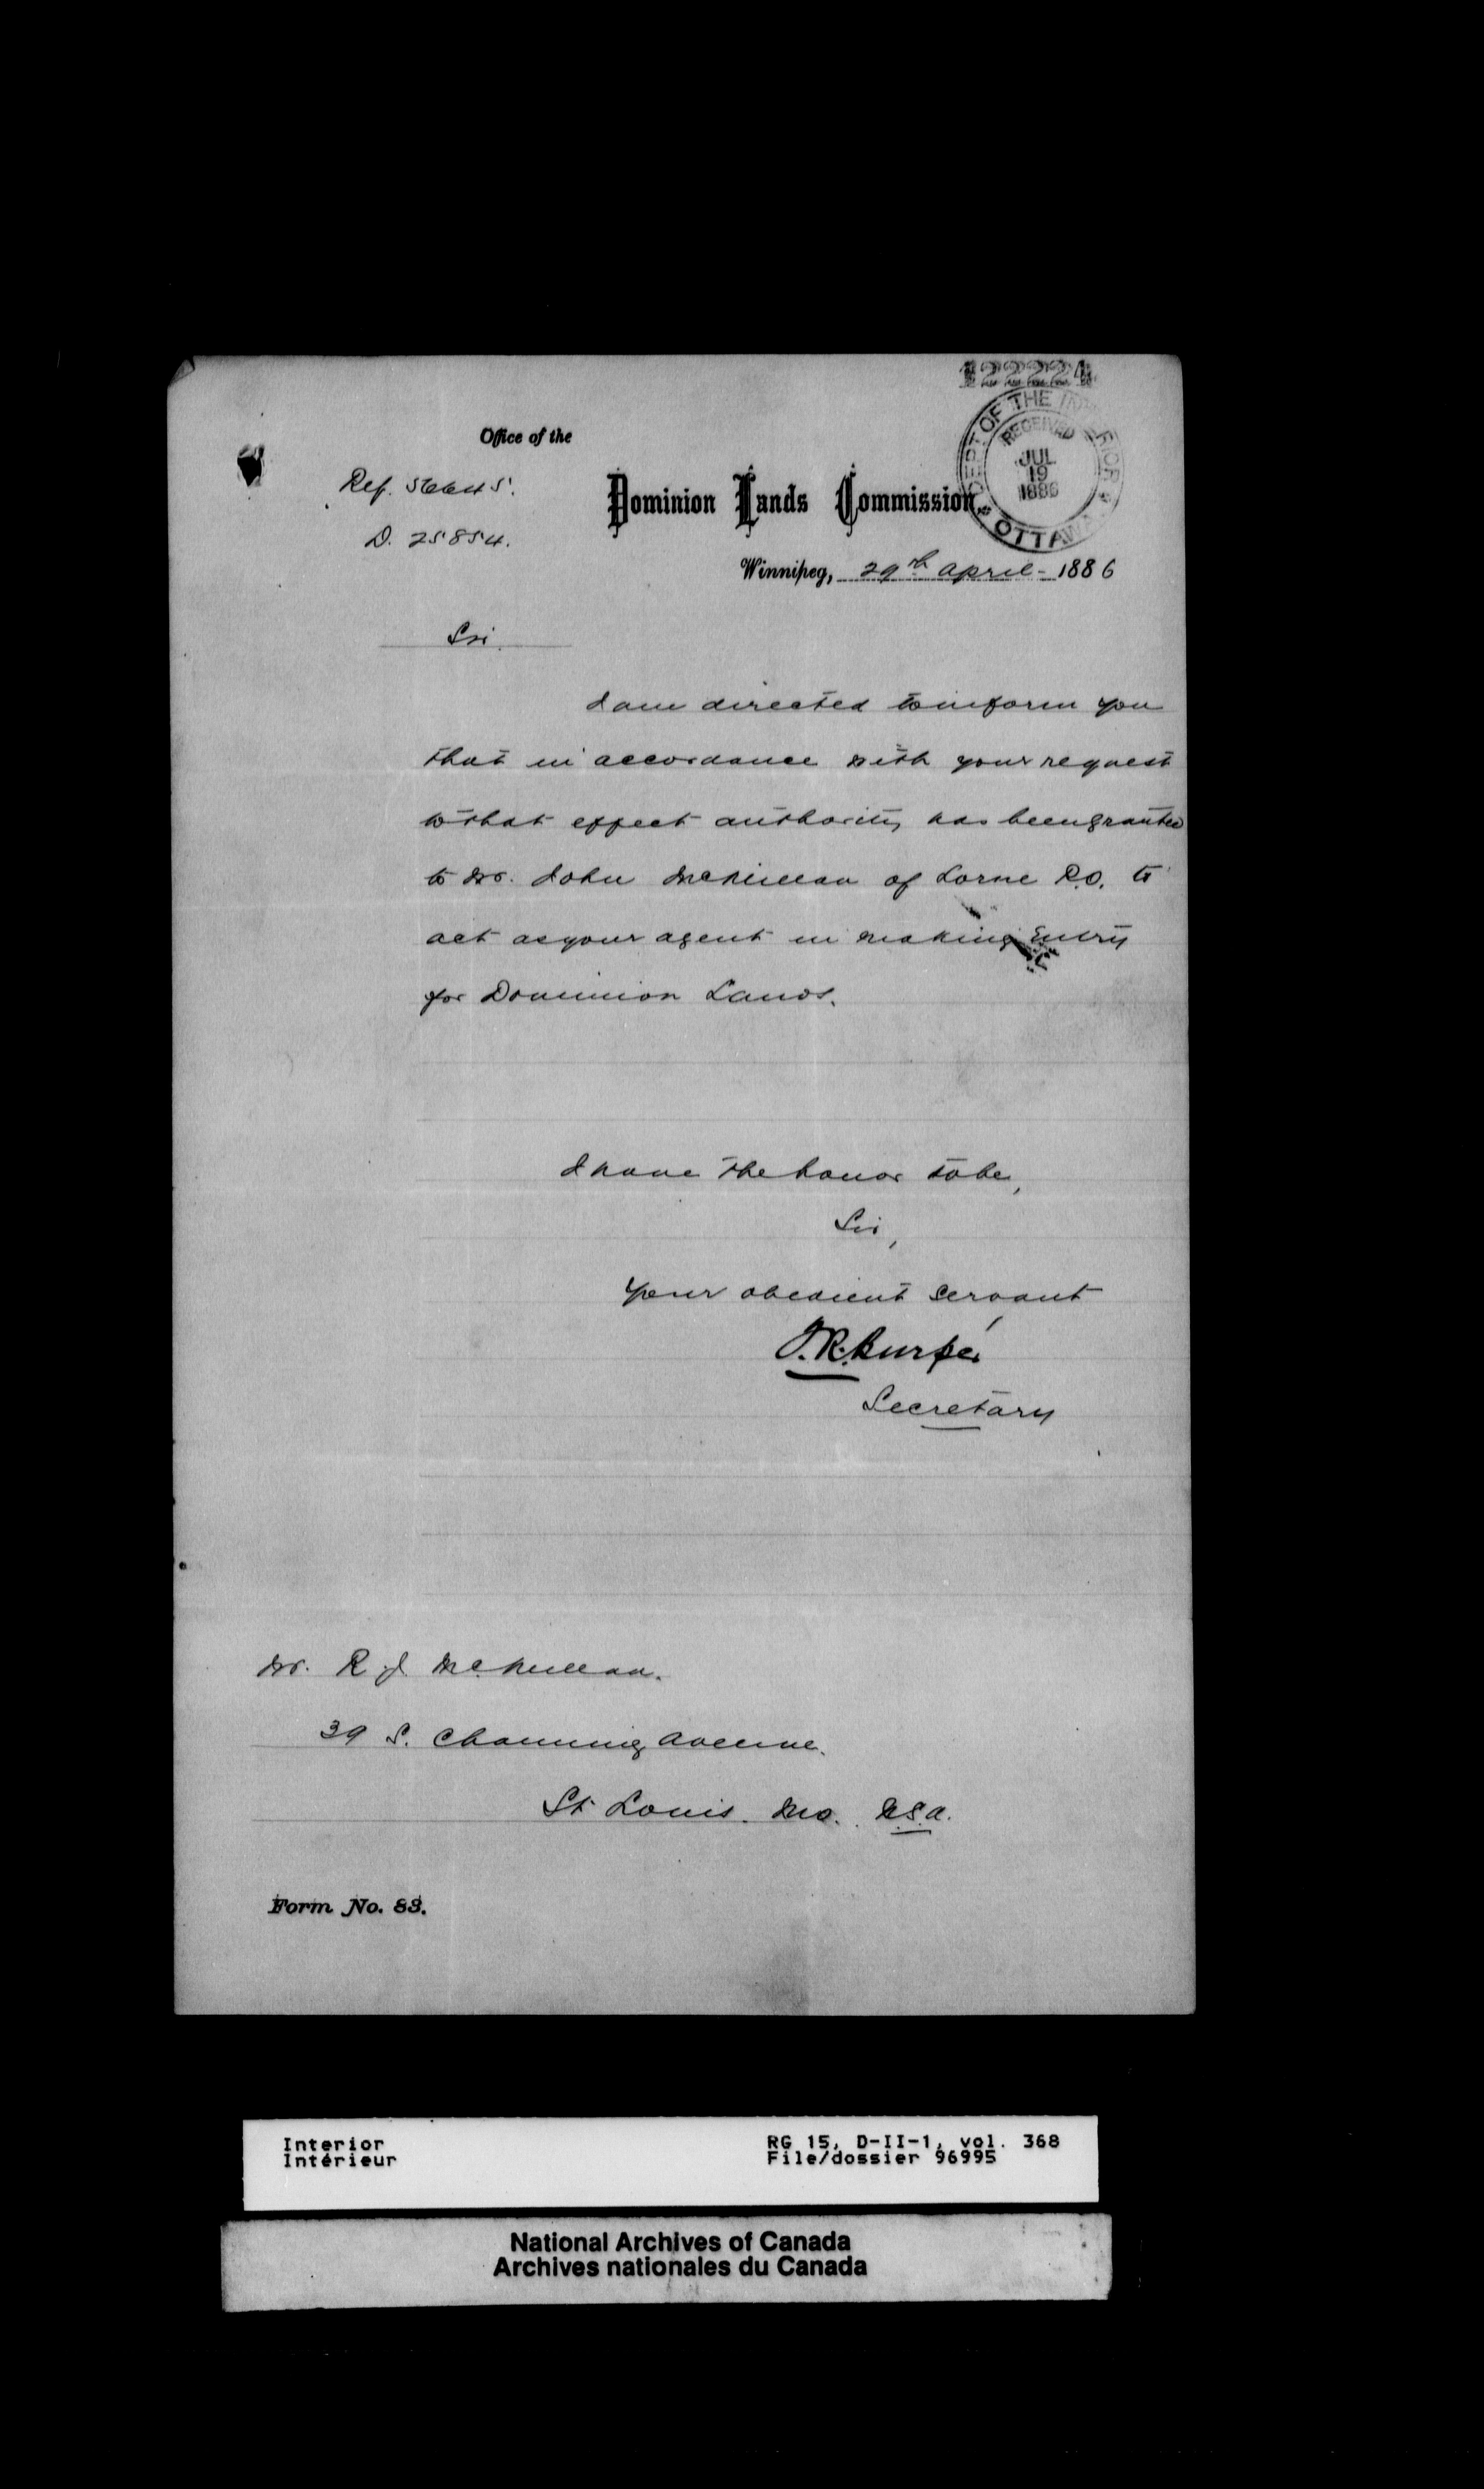 122224
DEPT OF THE INTERIOR
RECEIVED
JUL
19
1886
OTTAWA
Office of the
Ref. 56645.
Dominion Lands Commission,
D. 25854.
Winnipeg, 29th April - 1886
Sir.
I am directed to inform you
that in accordance with your request
to that effect authority has been granted
to Mr. John McMillan of Lorne P.O. to
act as your agent in making Entry
for Dominion Lands.
I have the honor to be,
Sir,
Your obedient servant
Secretary
Mr. R J McMillan.
39 S. Channing Avenue.
St Louis. Mo. U.S.A.
Form No. 83.
Interior RG 15, D-II-1, vol. 368
Intérieur File/dossier 96995
National Archives of Canada
Archives nationales du Canada